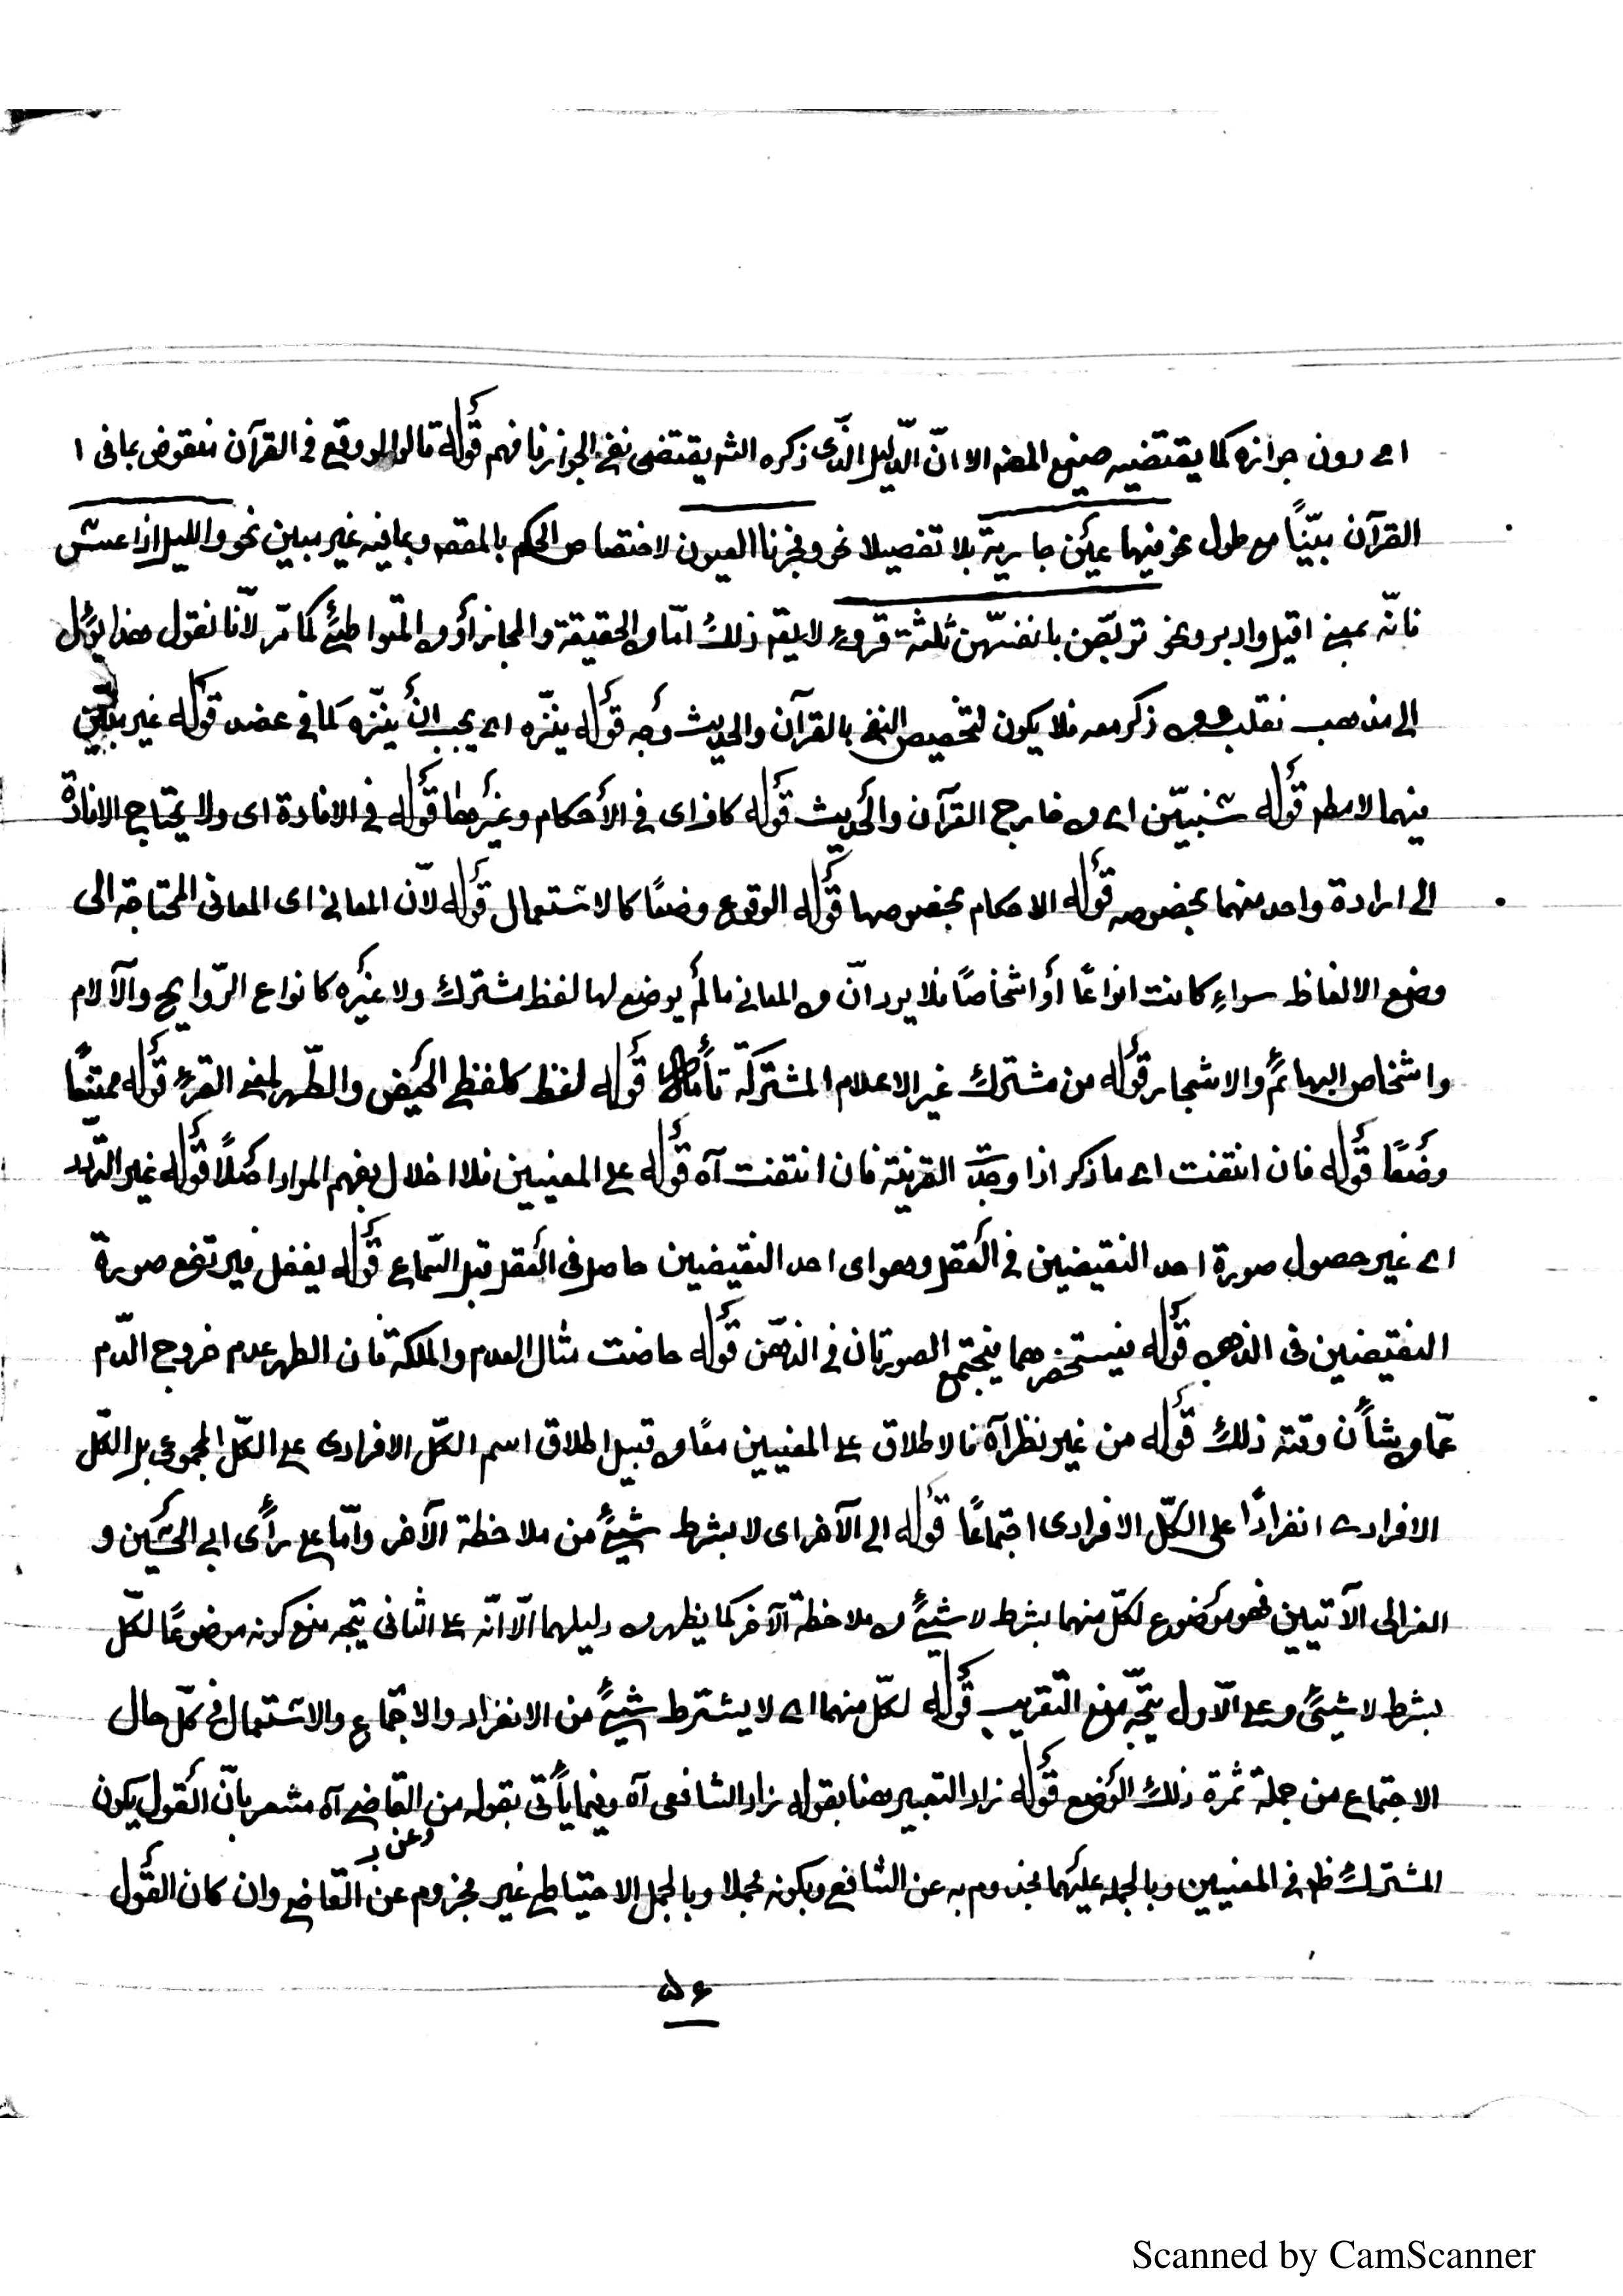 اى دون جوازه كما يقتضيه صنيع المصنف الا انّ الدّليل الذّى ذكره الشر يقتضى نفى الجواز فافهم قوله قالوا لو وقع فى القرآن منقوض بما فى ا
القرآن بيّنًا مع طول نحو فيهما عينٰن جارية بلا تفصيلا نحو وفجرنا العيون لاختصاص الحكم بالمقصر وبما فيه غير مبين نحو والليل اذا عسعس
فانّه بمعنى اقبل وادبر ونحو تربّصن بانفسهّن ثلثة قروء لا يقم ذلك امّا من الحقيقة والمجاز أو من المتواطئ كما مّر لأنّا نقول هذا يؤل
الى مذهب ذكر معه فلا يكون لتخصيص النفى بالقرآن والحديث وجه قوله ينزّه اى يجب انْ ينزّه كما فى عضد قوله غير مبيّن
فيهما لامطر قوله شنبيّن اى من خارج القرآن والحديث قوله كاف اى فى الأحكام وغيرها قوله فى الافادة اى ولا يحتاج الافادة
الى ارادة واحد منهما بخصوصه قوله الاحكام بخصوصها قوله الوقوع وضعًا كالاستعمال قوله لأنّ المعانى اى المعانى المحتاجة الى
وضع الالفاظ سواء كانت انواعًا أو اشخاصًا فلا يرد انّ من المعانى ما لم يوضع لها لفظ مشترك ولا غيره كانواع الرّوايح والآلام
واشخاص البهائم والاشجار قوله من مشترك غير الاعلام المشتركة تأمل قوله لفظ كلفظى الحيض والطّهر لمعنى القرء قوله ممتنعًا
وضعًا قوله فان انتفت اى ما ذكر اذا وجدت القرينة فان انتفت آه قوله على المعنيين فلا اخلال بفهم المراد اصلًا قوله غير التردد
اى غير حصول صورة احد النقيضين فى العقل وهو اى احد النقيضين حاصل فى العقل قبل السّماع قوله يغفل فيرتفع صورة
النقيضين فى الذهن قوله فيستحضرهما فيجتمع الصورتان فى الذهن قوله حاضت مثال العدم والملكة فان الطهر عدم خروج الدّم
عمّا من شأن وقته ذلك قوله من غير نظر آه فالاطلاق على المعنيين معًا من قبيل اطلاق اسم الكّل الافرادى على الكّل المجموعى بل الكّل
الافرادى انفرادًا على الكّل الافرادى اجتماعًا قوله الى الآخر اى لا بشرط شيئ من ملاحظة الآخر وامّا على رأى ابى الحسين و
الغزالى الآتيين فهو موضوع لكلّ منهما بشرط لا شيئ من ملاحظة الآخر كما يظهر من دليلهما الّا انّه على الثانى يتجه منع كونه موضوعًا لكلّ
بشرط لا شيئ وعلى الّاول يتجّه منع التقريب قوله لكلّ منهما اى لا يشترط شيئ من الانفراد والاجتماع والاستعمال فى كلّ حال
الاجتماع من جملة ثمرة ذلك الوضع قوله زاد التعبير هنا بقوله زاد الشافعى آه وفيما يأتى بقوله من القاضى آه مشعر بانّ القول يكون
المشترك ظهر فى المعنيين وبالحمل عليهما مجزوم به عن الشافعى وبكونه مجملا وبالحمل الاحتياطى غير مجزوم عن القاضى وان كان القول
۵۶
Scanned by CamScanner